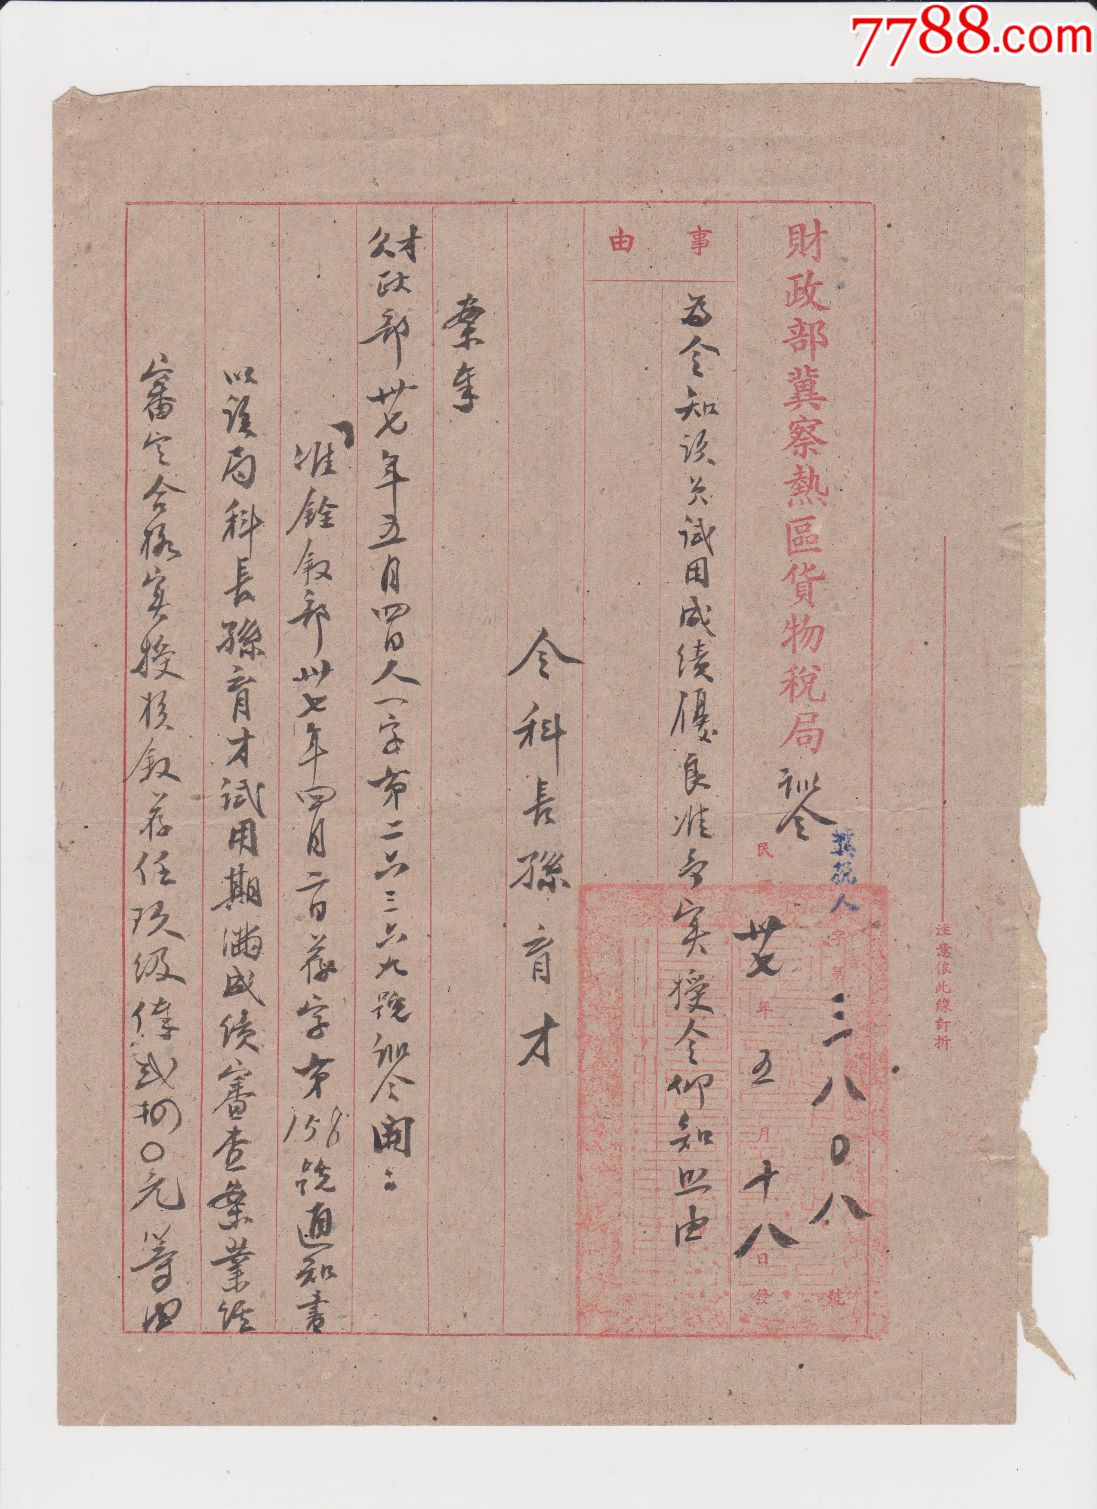 7788.com
注意依此線訂折
財政部冀察熱區貨物稅局訓令
冀稅人字第三八〇八號
民國卅七年五月十八日發
事由
為令知該員試用成績優良准予實授令仰知照由
令科長孫育才
案奉
財政部卅七年五月四日人一字第二六三六九號訓令開：
「准銓敘部卅七年四月二日荐字第156號通知書
以該局科長孫育才試用期滿成績審查案業經
審定合格實授核敘荐任玖級俸貳捌〇元等由